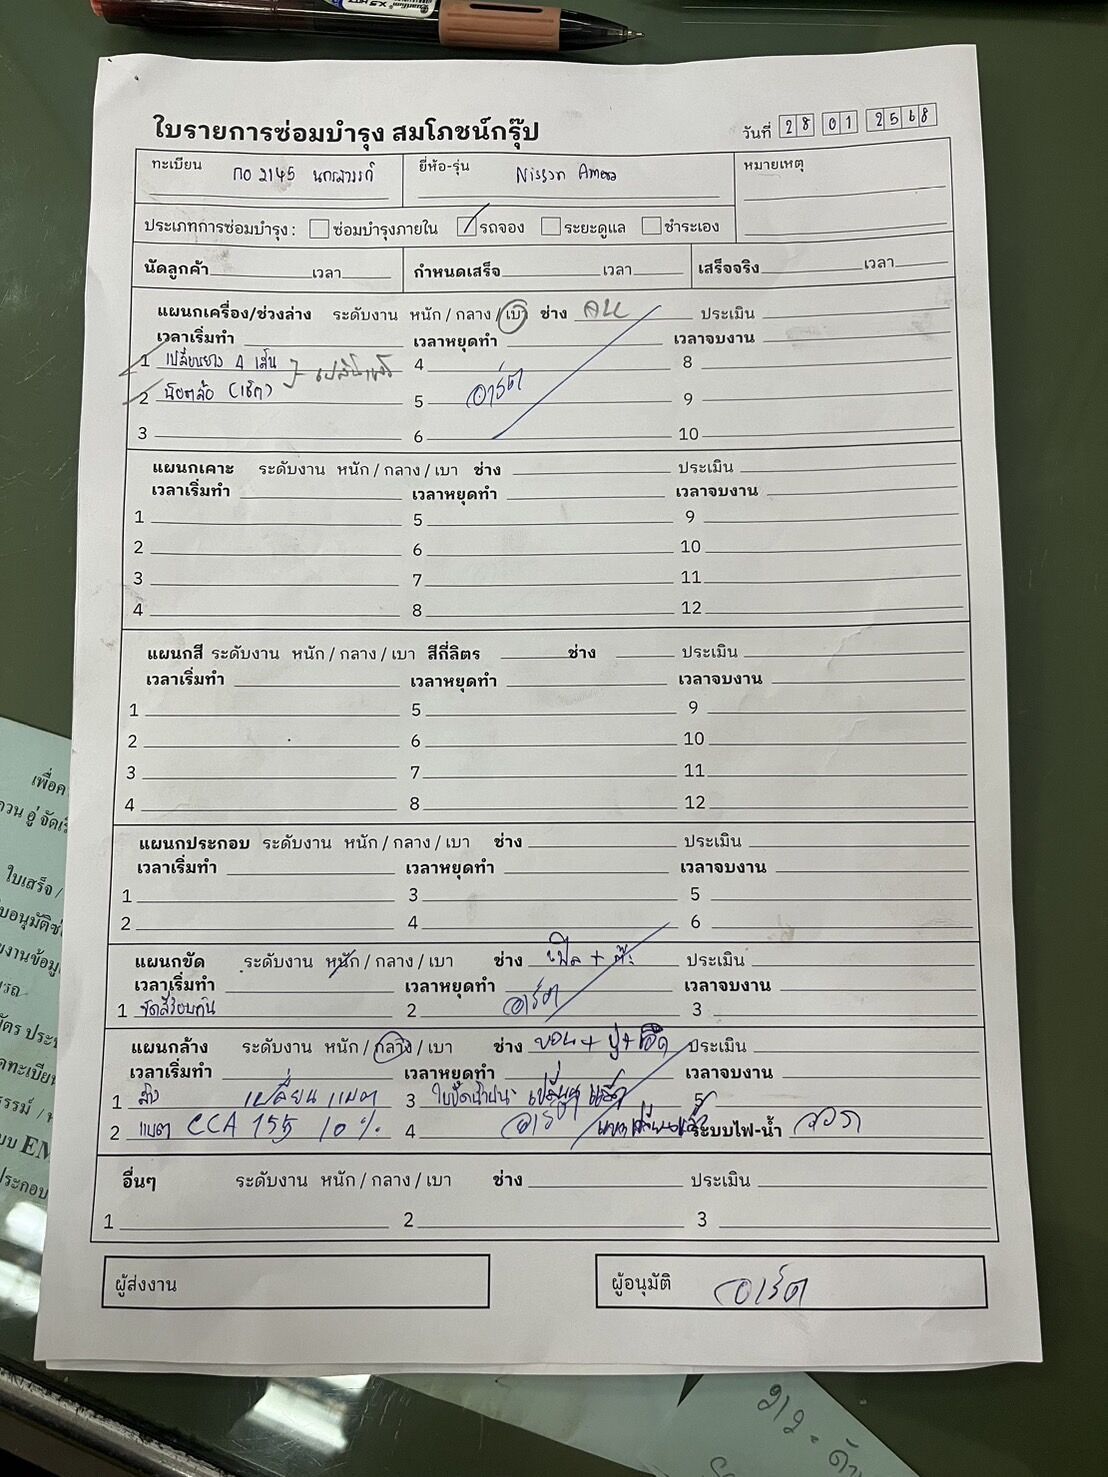 ใบรายการซ่อมบำรุง สมโภชน์กรุ๊ป
วันที่ 28 01 2568
ทะเบียน กอ 2145 นครสวรรค์ ยี่ห้อ-รุ่น Nissan หมายเหตุ
ประเภทการซ่อมบำรุง : ซ่อมบำรุงภายใน รถจอง ระยะดูแล ชำระเอง
นัดลูกค้า เวลา กำหนดเสร็จ เวลา เสร็จจริง เวลา
แผนกเครื่อง/ช่วงล่าง ระดับงาน หนัก / กลาง / เบา ช่าง ประเมิน
เวลาเริ่มทำ เวลาหยุดทำ เวลาจบงาน
1 เปลี่ยนยาง 4 เส้น 4 8
2 น๊อตล้อ (เช็ก) 5 อาร์ต 9
3 6 10
แผนกเคาะ ระดับงาน หนัก / กลาง / เบา ช่าง ประเมิน
เวลาเริ่มทำ เวลาหยุดทำ เวลาจบงาน
1 5 9
2 6 10
3 7 11
4 8 12
แผนกสี ระดับงาน หนัก / กลาง / เบา สีกี่ลิตร ช่าง ประเมิน
เวลาเริ่มทำ เวลาหยุดทำ เวลาจบงาน
1 5 9
2 6 10
3 7 11
4 8 12
แผนกประกอบ ระดับงาน หนัก / กลาง / เบา ช่าง ประเมิน
เวลาเริ่มทำ เวลาหยุดทำ เวลาจบงาน
1 3 5
2 4 6
แผนกขัด ระดับงาน หนัก / กลาง / เบา ช่าง ประเมิน
เวลาเริ่มทำ เวลาหยุดทำ เวลาจบงาน
1 ขัดสีรอบคัน 2 อาร์ต 3
แผนกล้าง ระดับงาน หนัก / กลาง / เบา ช่าง ประเมิน
เวลาเริ่มทำ เวลาหยุดทำ เวลาจบงาน
1 ล้าง เปลี่ยน แบต 3 ใบปัดน้ำฝน เปลี่ยน แล้ว 5
2 แบต CCA 155 10 % 4 อาร์ต ระบบไฟ-น้ำ
อื่นๆ ระดับงาน หนัก / กลาง / เบา ช่าง ประเมิน
1 2 3
ผู้ส่งงาน ผู้อนุมัติ อาร์ต
เพื่อค
ใบเสร็จ /